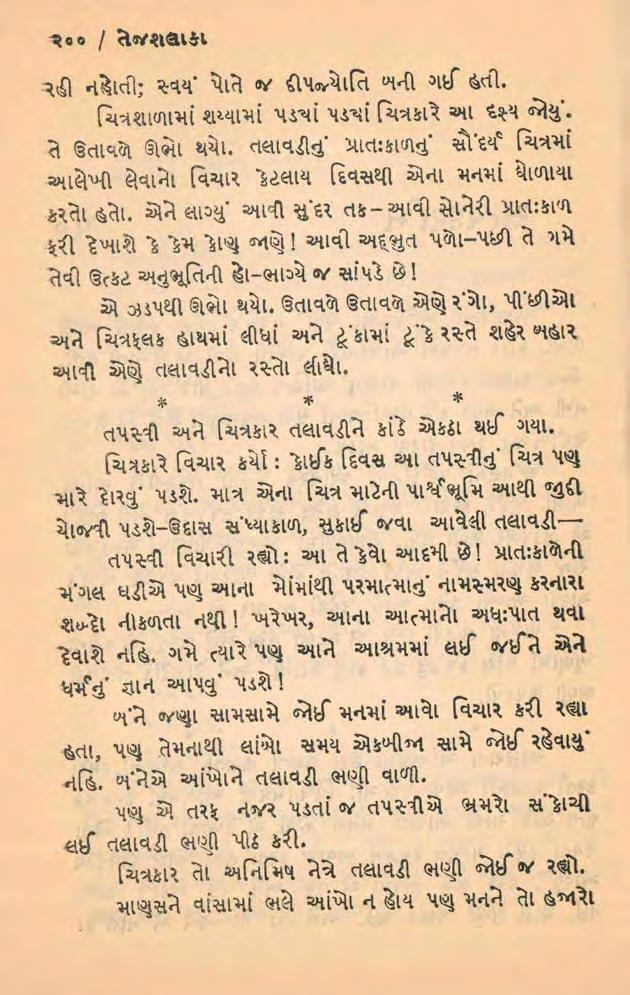 ૨૦૦ / તેજશલાકા
રહી નહોતી; સ્વયં પોતે જ દીપજ્યોતિ બની ગઈ હતી.
ચિત્રશાળામાં શય્યામાં પડ્યાં પડ્યાં ચિત્રકારે આ દૃશ્ય જોયું.
તે ઉતાવળે ઊભો થયો. તલાવડીનું પ્રાતઃકાળનું સૌંદર્ય ચિત્રમાં
આલેખી લેવાનો વિચાર કેટલાય દિવસથી એના મનમાં ઘોળાયા
કરતો હતો. એને લાગ્યું આવી સુંદર તક–આવી સોનેરી પ્રાતઃકાળ
ફરી દેખાશે કે કેમ કોણ જાણે! આવી અદ્ભુત પળો–પછી તે ગમે
તેવી ઉત્કટ અનુભૂતિની હો–ભાગ્યે જ સાંપડે છે!
એ ઝડપથી ઊભો થયો. ઉતાવળે ઉતાવળે એણે રંગો, પીંછીઓ
અને ચિત્રફલક હાથમાં લીધાં અને ટૂંકામાં ટૂંકે રસ્તે શહેર બહાર
આવી એણે તલાવડીનો રસ્તો લીધો.
* * *
તપસ્વી અને ચિત્રકાર તલાવડીને કાંઠે એકઠા થઈ ગયા.
ચિત્રકારે વિચાર કર્યો : કોઈક દિવસ આ તપસ્વીનું ચિત્ર પણ
મારે દોરવું પડશે. માત્ર એના ચિત્ર માટેની પાર્શ્વભૂમિ આથી જુદી
યોજવી પડશે–ઉદાસ સંધ્યાકાળ, સુકાઈ જવા આવેલી તલાવડી—
તપસ્વી વિચારી રહ્યો: આ તે કેવો આદમી છે! પ્રાતઃકાળની
મંગલ ઘડીએ પણ આના મોંમાંથી પરમાત્માનું નામસ્મરણ કરનારા
શબ્દો નીકળતા નથી! ખરેખર, આના આત્માનો અધઃપાત થવા
દેવાશે નહિ. ગમે ત્યારે પણ આને આશ્રમમાં લઈ જઈને એને
ધર્મનું જ્ઞાન આપવું પડશે!
બંને જણા સામસામે જોઈ મનમાં આવો વિચાર કરી રહ્યા
હતા, પણ તેમનાથી લાંબો સમય એકબીજા સામે જોઈ રહેવાયું
નહિ. બંનેએ આંખોને તલાવડી ભણી વાળી.
પણ એ તરફ નજર પડતાં જ તપસ્વીએ ભ્રમરો સંકોચી
લઈ તલાવડી ભણી પીઠ કરી.
ચિત્રકાર તો અનિમિષ નેત્રે તલાવડી ભણી જોઈ જ રહ્યો.
માણસને વાંસામાં ભલે આંખો ન હોય પણ મનને તો હજારો